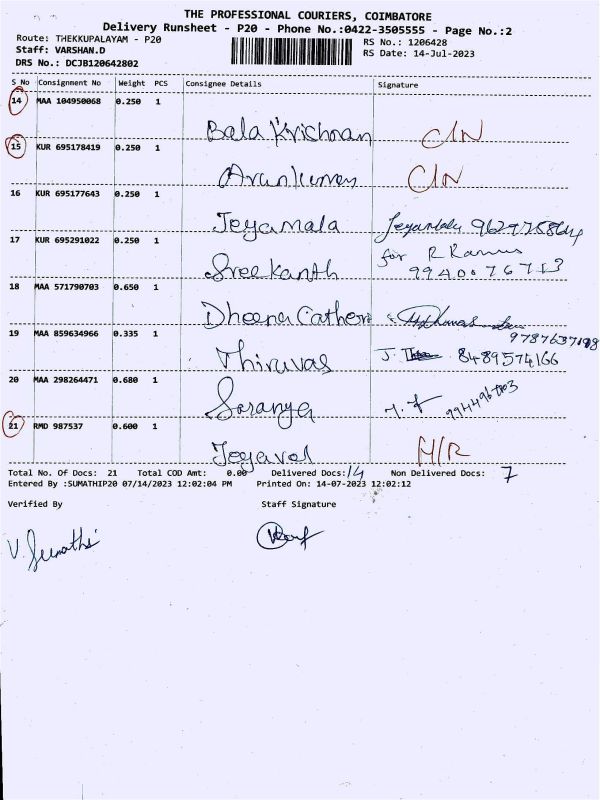 THE PROFESSIONAL COURIERS, COIMBATORE
Delivery Runsheet - P20 - Phone No.:0422-3505555 - Page No.:2
Route: THEKKUPALAYAM - P20
RS No.: 1206428
Staff: VARSHAN.D
RS Date: 14-Jul-2023
DRS No.: DCJB120642802
S No Consignment No Weight PCS Consignee Details Signature
14 MAA 104950068 0.250 1
Bala Krishnan C/N
15 KUR 695178419 0.250 1
Arunkumar C/N
16 KUR 695177643 0.250 1
Jeyamala Jeyamala
17 KUR 695291022 0.250 1
for R
Sreekanth 9940076713
18 MAA 571790703 0.650 1
Dheena
19 MAA 859634966 0.335 1
Thiruvas J. 8489574166
20 MAA 298264471 0.680 1
Saranya
21 RMD 987537 0.600 1
Jeyavel
Total No. Of Docs: 21 Total COD Amt: 0.00 Delivered Docs: 14 Non Delivered Docs: 7
Entered By :SUMATHIP20 07/14/2023 12:02:04 PM Printed On: 14-07-2023 12:02:12
Verified By Staff Signature
V. Sumathi